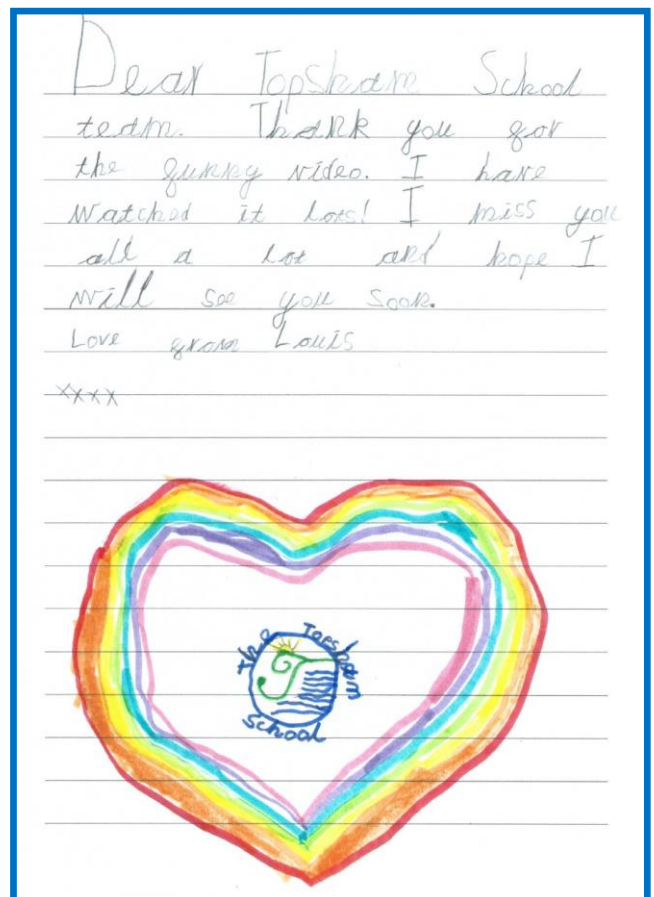 Dear Topsham School
team. Thank you for
the funny video. I have
watched it lots! I miss you
all a lot and hope I
will see you soon.
Love from Louis
xxxx
The Topsham
School